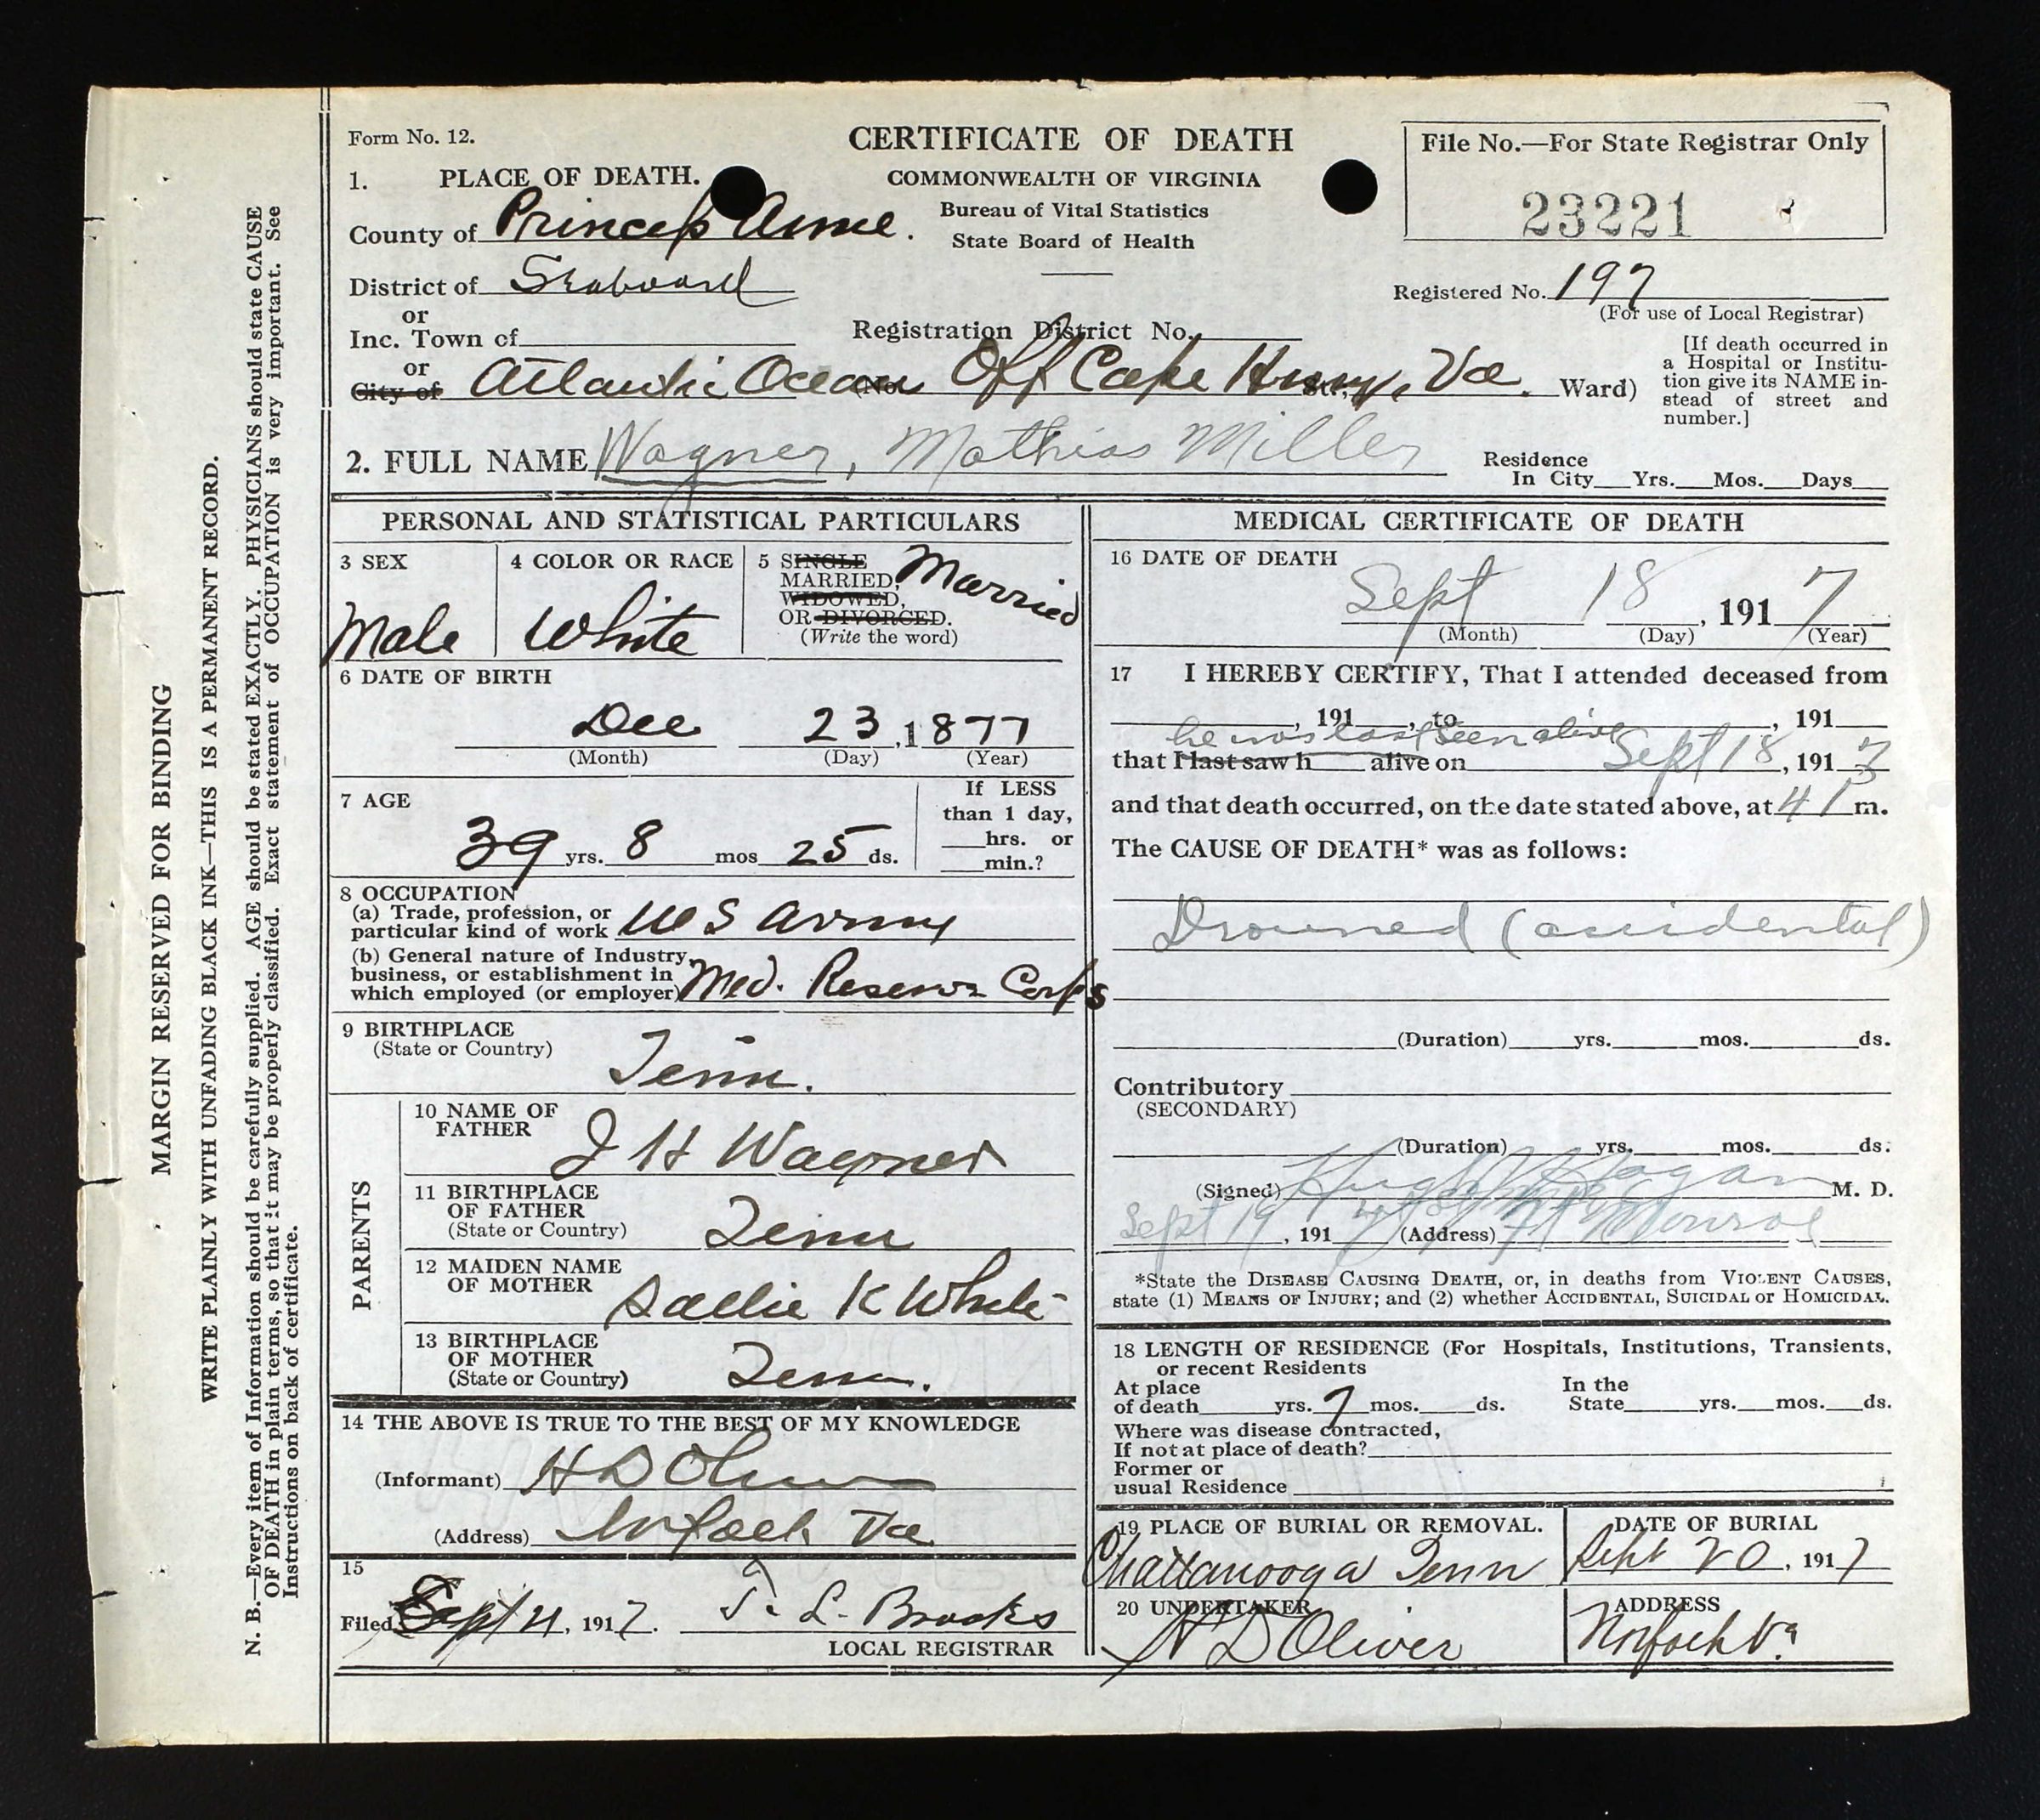 Form No. 12.
CERTIFICATE OF DEATH
COMMONWEALTH OF VIRGINIA
Bureau of Vital Statistics
State Board of Health
File No.—For State Registrar Only
23221
1. PLACE OF DEATH.
County of Princess Anne.
District of Seaboard
or
Inc. Town of
Registration District No.
Registered No. 197
(For use of Local Registrar)
or
City of Atlantic Ocean (No. Off Cape Henry, Va. St., Ward)
[If death occurred in
a Hospital or Institu-
tion give its NAME in-
stead of street and
number.]
2. FULL NAME Wagner, Mathias Miller
Residence
In City Yrs. Mos. Days
PERSONAL AND STATISTICAL PARTICULARS
3 SEX
Male
4 COLOR OR RACE
White
5 SINGLE
MARRIED,
WIDOWED,
OR DIVORCED.
(Write the word)
Married
6 DATE OF BIRTH
Dec 23, 1877
(Month) (Day) (Year)
7 AGE
39 yrs. 8 mos 25 ds.
If LESS
than 1 day,
hrs. or
min.?
8 OCCUPATION
(a) Trade, profession, or
particular kind of work U S Army
(b) General nature of Industry,
business, or establishment in
which employed (or employer) Med. Reserve Corps
9 BIRTHPLACE
(State or Country)
Tenn.
PARENTS
10 NAME OF
FATHER
J H Wagner
11 BIRTHPLACE
OF FATHER
(State or Country)
Tenn
12 MAIDEN NAME
OF MOTHER
Sallie K White
13 BIRTHPLACE
OF MOTHER
(State or Country)
Tenn.
14 THE ABOVE IS TRUE TO THE BEST OF MY KNOWLEDGE
(Informant) H D Oliver
(Address) Norfolk Va
15
Filed Sept 21, 1917. T. L. Brooks
LOCAL REGISTRAR
MEDICAL CERTIFICATE OF DEATH
16 DATE OF DEATH
Sept 18, 1917
(Month) (Day) (Year)
17 I HEREBY CERTIFY, That I attended deceased from
, 191 , to , 191
he was last seen alive
that I last saw h alive on Sept 18, 1917
and that death occurred, on the date stated above, at m.
The CAUSE OF DEATH* was as follows:
Drowned (accidental)
(Duration) yrs. mos. ds.
Contributory
(SECONDARY)
(Duration) yrs. mos. ds.
(Signed) Hugh Hogan M. D.
Sept 19, 191 (Address) Ft Monroe
*State the DISEASE CAUSING DEATH, or, in deaths from VIOLENT CAUSES,
state (1) MEANS OF INJURY; and (2) whether ACCIDENTAL, SUICIDAL or HOMICIDAL.
18 LENGTH OF RESIDENCE (For Hospitals, Institutions, Transients,
or recent Residents
At place
of death yrs. 7 mos. ds.
In the
State yrs. mos. ds.
Where was disease contracted,
If not at place of death?
Former or
usual Residence
19 PLACE OF BURIAL OR REMOVAL.
Chattanooga Tenn
DATE OF BURIAL
Sept 20, 1917
20 UNDERTAKER
H D Oliver
ADDRESS
Norfolk Va
MARGIN RESERVED FOR BINDING
WRITE PLAINLY WITH UNFADING BLACK INK—THIS IS A PERMANENT RECORD.
N. B.—Every item of Information should be carefully supplied. AGE should be stated EXACTLY. PHYSICIANS should state CAUSE
OF DEATH in plain terms, so that it may be properly classified. Exact statement of OCCUPATION is very important. See
Instructions on back of certificate.